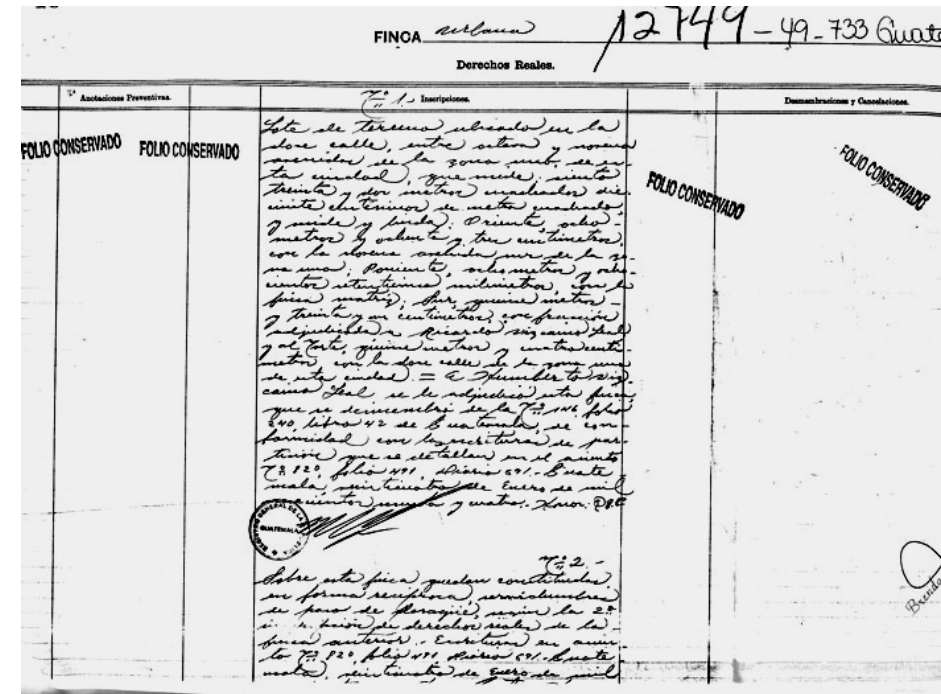 FINCA urbana 12749 - 49 - 733 Guate
Derechos Reales.
Anotaciones Preventivas.
Nº 1.- Inscripciones.
Desmembraciones y Cancelaciones.
FOLIO CONSERVADO
FOLIO CONSERVADO
FOLIO CONSERVADO
FOLIO CONSERVADO
Lote de terreno ubicado en la
doce calle, entre octava y novena
avenidas de la zona uno, de es-
ta ciudad, que mide: ciento
treinta y dos metros cuadrados die-
cisiete centésimos de metro cuadrado,
y mide y linda: Oriente, ocho
metros y ochenta y tres centímetros,
con la novena avenida sur de la zo-
na uno; Poniente, ocho metros y ocho-
cientos setenticinco milímetros, con la
finca matriz; Sur, quince metros -
y treinta y un centímetros, con fracción
adjudicada a Ricardo Leal
y al Norte, quince metros y cuatro centí-
metros, con la doce calle de la zona uno
de esta ciudad. = A Humberto
Leal se le adjudicó esta finca
que se desmembró de la Nº 146, folio
240, libro 42 de Guatemala, de con-
formidad con las escrituras de par-
tición que se detallan en el asiento
Nº 820, folio 491, Diario 691.- Guate
mala, veinticuatro de Enero de mil
novecientos y cuatro. Honor.
REGISTRO GENERAL DE LA
GUATEMALA
Nº 2.-
Sobre esta finca quedan constituidas
en forma recíproca, servidumbres
de paso de desagüe, según la 2ª
de derechos reales de la
finca anterior.- Escrituras en asien-
to Nº 820, folio 491, Diario 691.- Guate
mala, veinticuatro de Enero de mil
Brenda